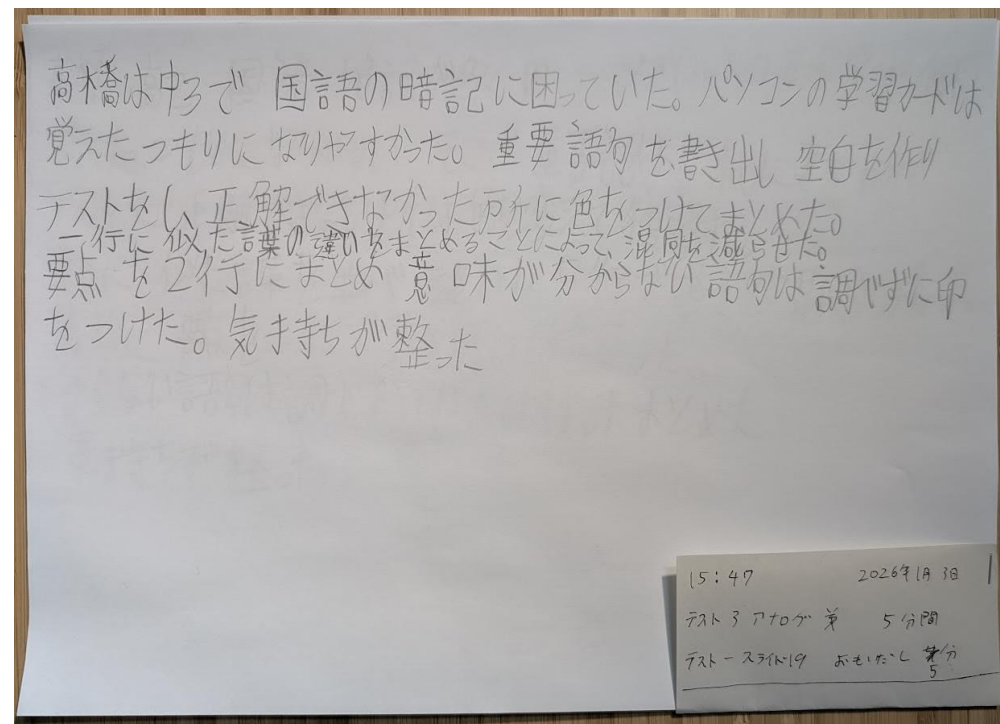 高橋は中3で 国語の暗記に困っていた。パソコンの学習カードは
覚えたつもりになりやすかった。 重要語句を書き出し 空白を作り
テストをし、正解できなかった所に色をつけてまとめた。
一行に似た言葉の違いをまとめることによって、混同を減らせた。
要点を2行にまとめ 意味が分からない語句は調べずに印
をつけた。気持ちが整った
15:47 2026年1月3日
テスト3 アナログ 5分間
テスト-スライド19 おもいだし 5分